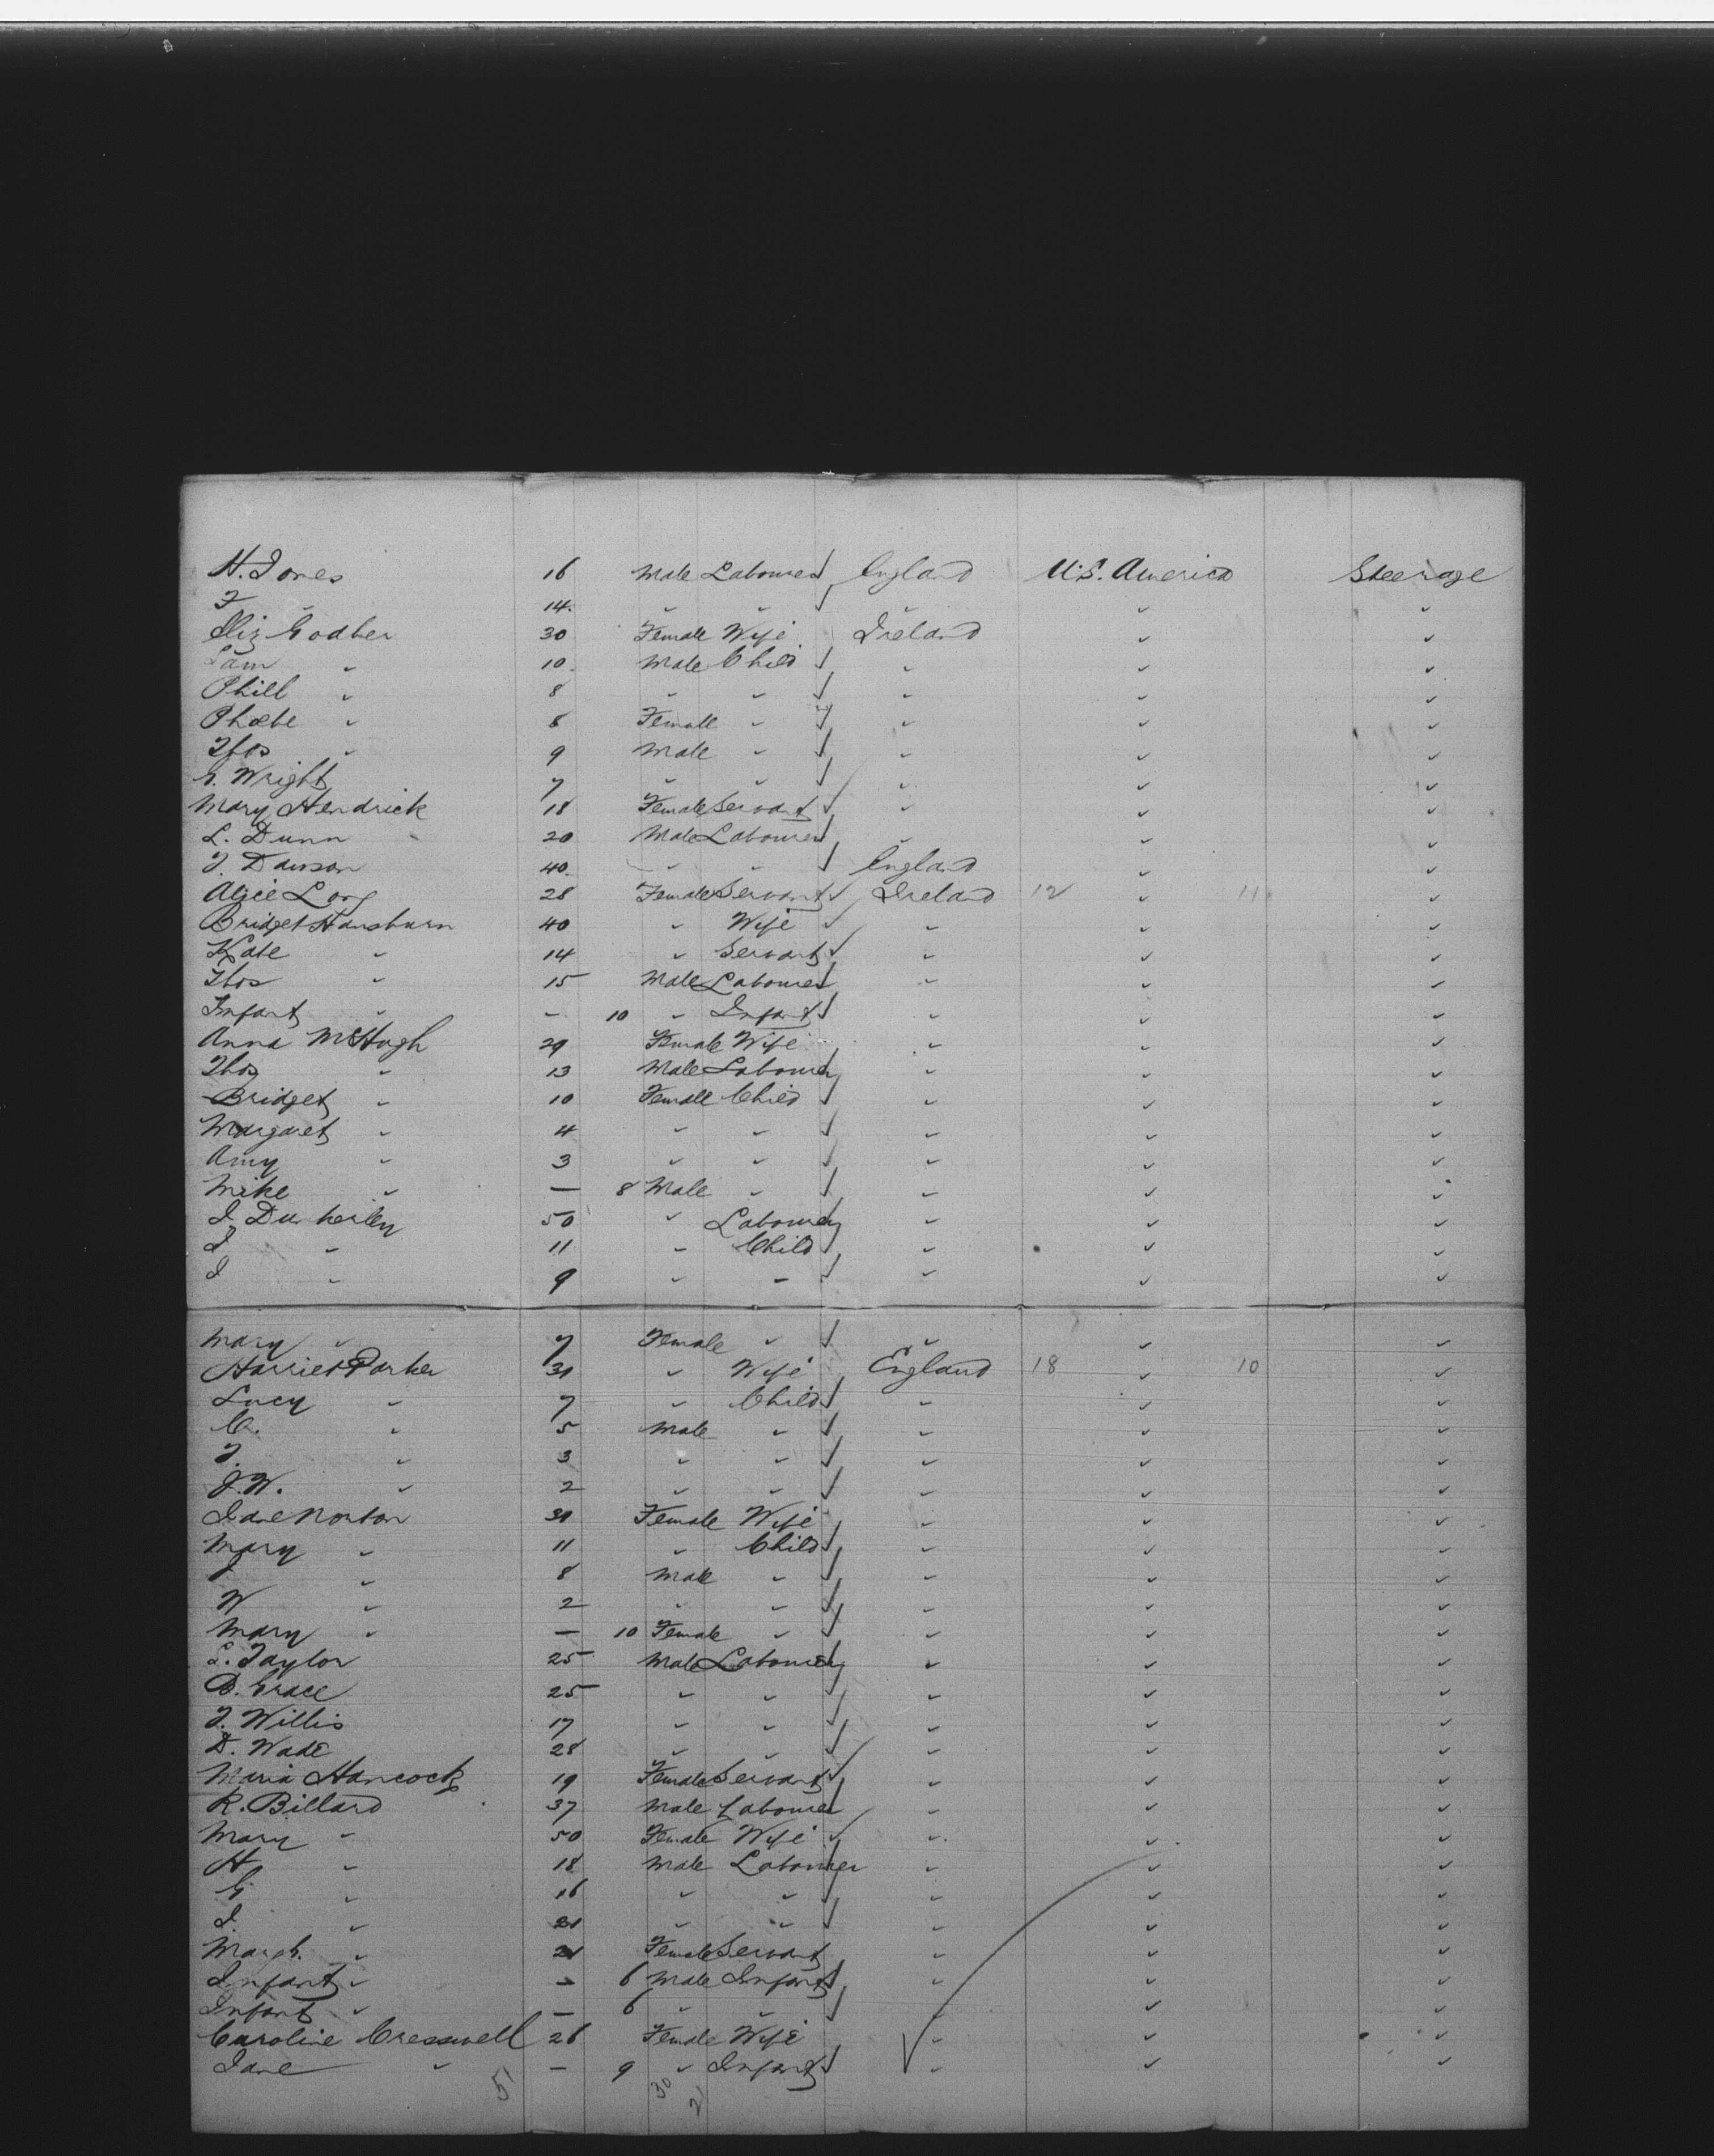 H. Jones 16 Male Labourer England U.S. America Steerage
F " 14 " " " " "
Eliz Godber 30 Female Wife Ireland " "
Sam " 10 Male Child " " "
Phill " 8 " " " " "
Phœbe " 8 Female " " " "
Thos " 9 Male " " " "
G. Wright 7 " " " " "
Mary Hendrick 18 Female Servant " " "
L. Dunn 20 Male Labourer " " "
J. Dawson 40 " " England " "
Alice Long 28 Female Servant Ireland 12 " 11 "
Bridget Hansburn 40 " Wife " " "
Kate " 14 " Servant " " "
Thos " 15 Male Labourer " " "
Infant " - 10 " Infant " " "
Anna McHugh 29 Female Wife " " "
Thos " 13 Male Labourer " " "
Bridget " 10 Female Child " " "
Margaret " 4 " " " " "
Amy " 3 " " " " "
Mike " — 8 Male " " " "
J. 50 " Labourer " " "
J " 11 " Child " " "
J " 9 " " " " "
Mary " 7 Female " " " "
Harriet Parker 31 " Wife England 18 " 10 "
Lucy " 7 " Child " " "
C. " 5 Male " " " "
J. " 3 " " " " "
J.W. " 2 " " " " "
Jane Norton 31 Female Wife " " "
Mary " 11 " Child " " "
J " 8 Male " " " "
W " 2 " " " " "
Mary " — 10 Female " " " "
L. Taylor 25 Male Labourer " " "
B. Grace 25 " " " " "
J. Willis 17 " " " " "
D. Wade 28 " " " " "
Maria Hancock 19 Female Servant " " "
R. Billard 37 Male Labourer " " "
Mary " 50 Female Wife " " "
H " 18 Male Labourer " " "
G " 16 " " " " "
J. " 21 " " " " "
Margt. " 21 Female Servant " " "
Infant " - 6 Male Infant " " "
Infant " — 6 " " " " "
Caroline Cresswell 26 Female Wife " " "
Jane " — 9 " Infant " " "
51 30 21